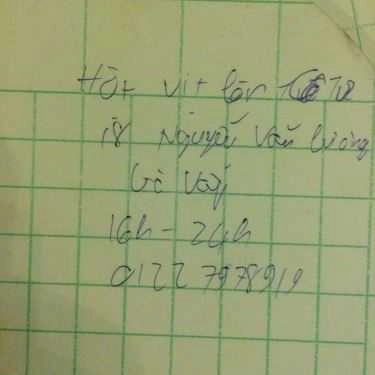 Hột vịt lộn
18 Nguyễn Văn Lương
Gò Vấp
16h - 24h
0122 7978919